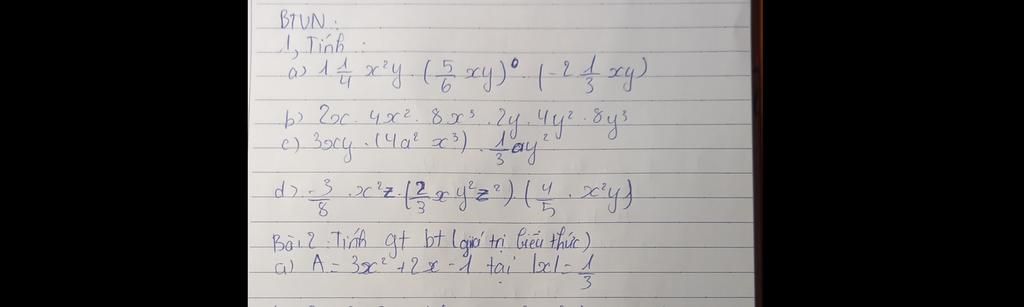 BTVN:
1, Tính:
a) 1 1/4 x²y . (5/6 xy)⁰ . (-2 1/3 xy)
b) 2x . 4x² . 8x³ . 2y . 4y² . 8y³
c) 3xy . (4a² x³) . 1/3 ay²
d) -3/8 . x²z . (2/3 xy²z²) . (4/5 . x²y)
Bài 2: Tính gt bt (giá trị biểu thức)
a) A = 3x² + 2x - 1 tại |x| = 1/3